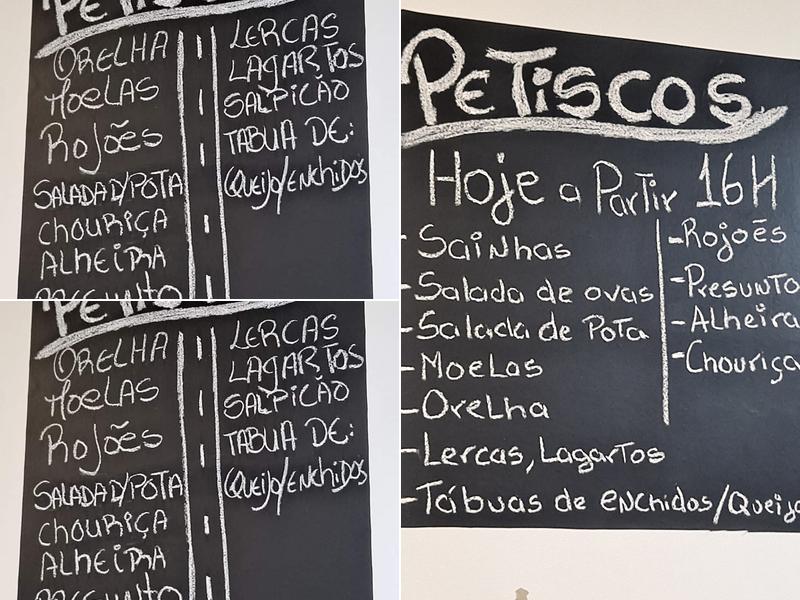 PETISCOS
ORELHA
MOELAS
ROJÕES
SALADA D/POTA
CHOURIÇA
ALHEIRA
PRESUNTO
LERCAS
LAGARTOS
SALPICÃO
TABUA DE:
QUEIJO/ENCHIDOS
PETISCOS
ORELHA
MOELAS
ROJÕES
SALADA D/POTA
CHOURIÇA
ALHEIRA
PRESUNTO
LERCAS
LAGARTOS
SALPICÃO
TABUA DE:
QUEIJO/ENCHIDOS
PETISCOS
Hoje a Partir 16H
- Sainhas
- Salada de ovas
- Salada de Pota
- Moelas
- Orelha
- Lercas, Lagartos
- Tábuas de enchidos/Queijo
- Rojoẽs
- Presunto
- Alheira
- Chouriça